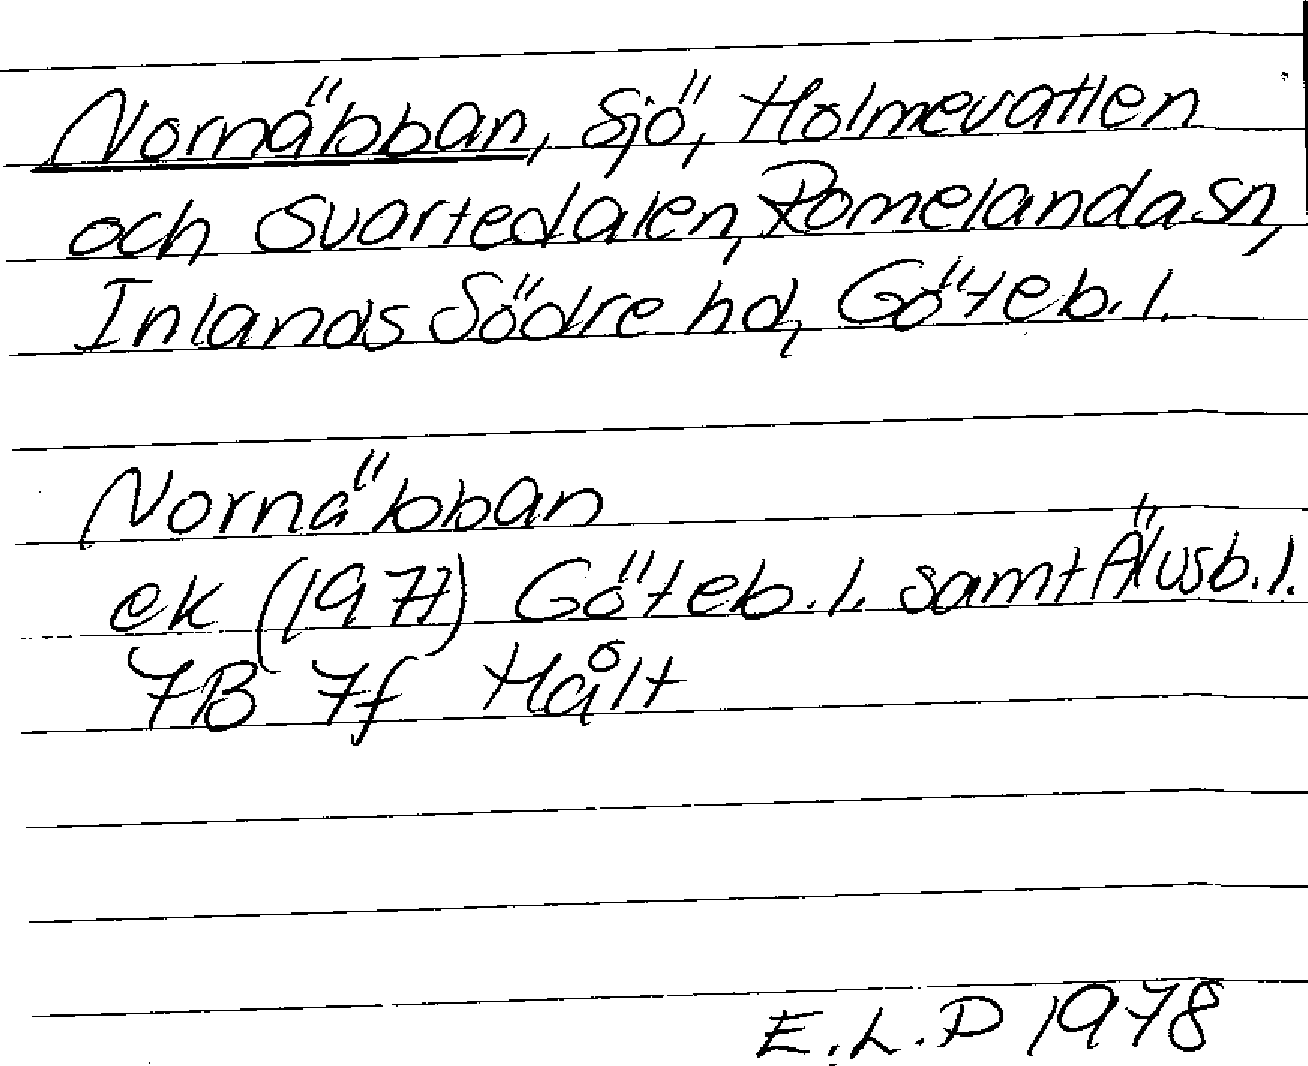 Nornäbban, Sjö, Holmevatten
och Svartedalen, Romelanda sn,
Inlands Södre hd, Göteb. l.
Nornäbban
ek (1977) Göteb. l. samt Älvsb. l.
7B 7f Hålt
E.L.D 1978